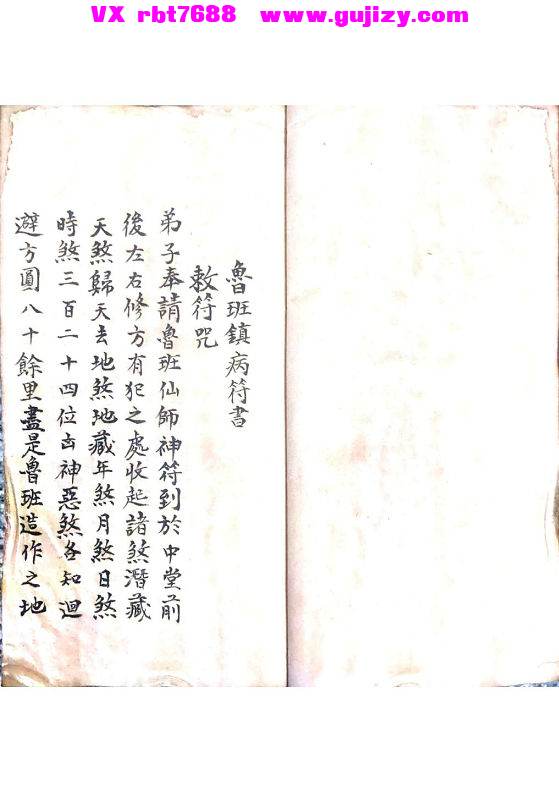 VX rbt7688 www.gujizy.com
魯班鎮病符書
敕符咒
弟子奉請魯班仙師神符到於中堂前
後左右修方有犯之處收起諸煞潛藏
天煞歸天去地煞地藏年煞月煞日煞
時煞三百二十四位凶神惡煞各知迴
避方圓八十餘里盡是魯班造作之地